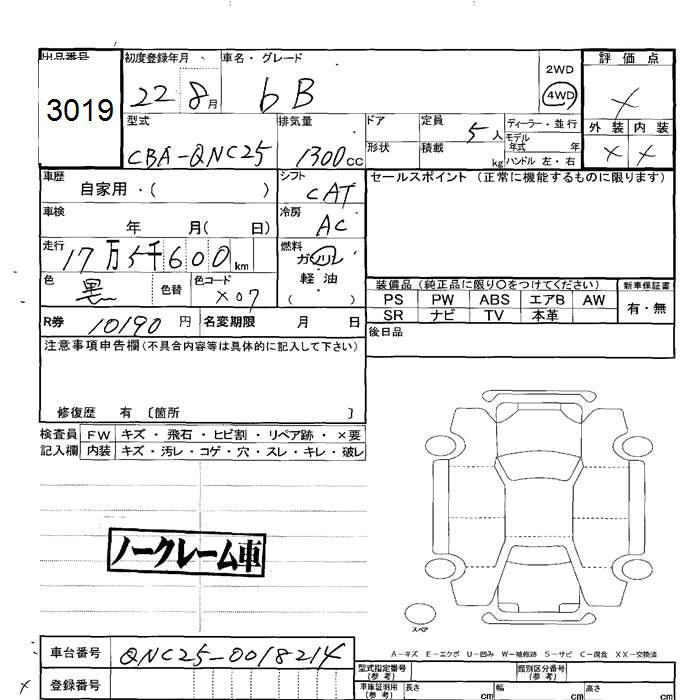 出品番号
3019
初度登録年月
22 8月
車名・グレード
bB
2WD
4WD
評価点
×
外装 内装
× ×
型式
CBA-QNC25
排気量
1300cc
ドア
形状
定員 5人
積載 kg
ディーラー・並行
モデル年式 年
ハンドル 左・右
車歴
自家用・( )
シフト
CAT
セールスポイント (正常に機能するものに限ります)
車検
年 月( 日)
冷房
AC
走行
17万5千600km
燃料
ガソリン
軽・油
( )
色
黒
色替
色コード
X07
装備品(純正品に限り〇をつけてください)
新車保証書
PS PW ABS エアB AW
SR ナビ TV 本革
有・無
R券 10190円
名変期限 月 日
後日品
注意事項申告欄(不具合内容等は具体的に記入して下さい)
修復歴 有 〔箇所 〕
検査員記入欄
FW キズ・飛石・ヒビ割・リペア跡・×要
内装 キズ・汚レ・コゲ・穴・スレ・キレ・破レ
ノークレーム車
スペア
A-キズ E-エクボ U-凹み W-補修跡 S-サビ C-腐食 XX-交換済
車台番号
QNC25-0018214
× 登録番号
型式指定番号(参考)
類別区分番号(参考)
車庫証明用(参考) 長さ cm 幅 cm 高さ cm